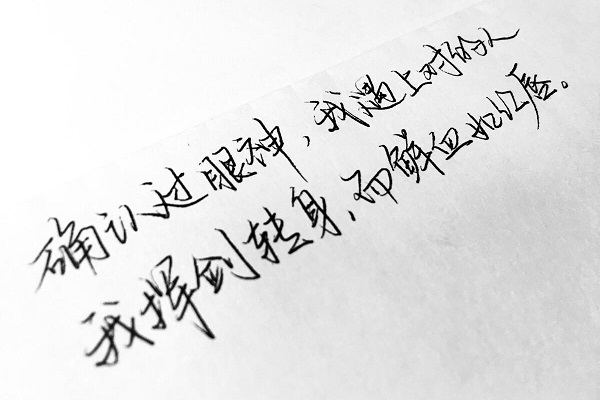 确认过眼神，我遇上对的人
我挥剑转身，而鲜血如红唇。